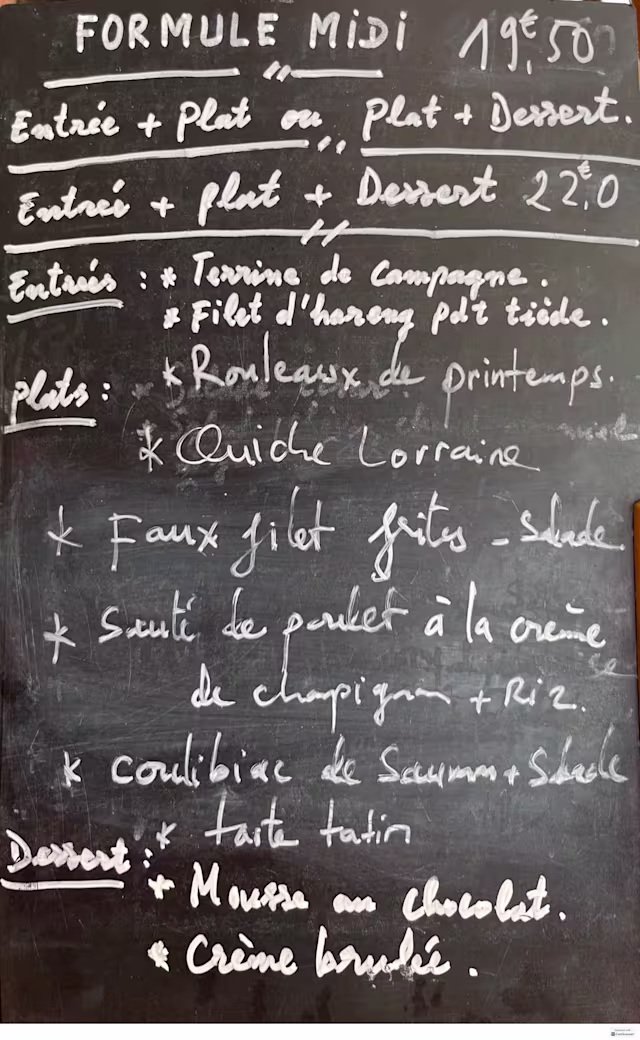 FORMULE MiDi 19,€50
Entrée + Plat ou Plat + Dessert.
Entreé + plat + Dessert 22,€0
Entrés : * Terrine de Campagne.
* Filet d'hareng pdt tiède.
* Rouleaux de printemps.
Plats :
* Quiche Lorraine
* Faux filet frites - Salade
* Sauté de poulet à la crème
de champignon + Riz.
* Coulibiac de Saumon + Salade
* tarte tatin
Dessert :
* Mousse au chocolat.
* Crème brulée.